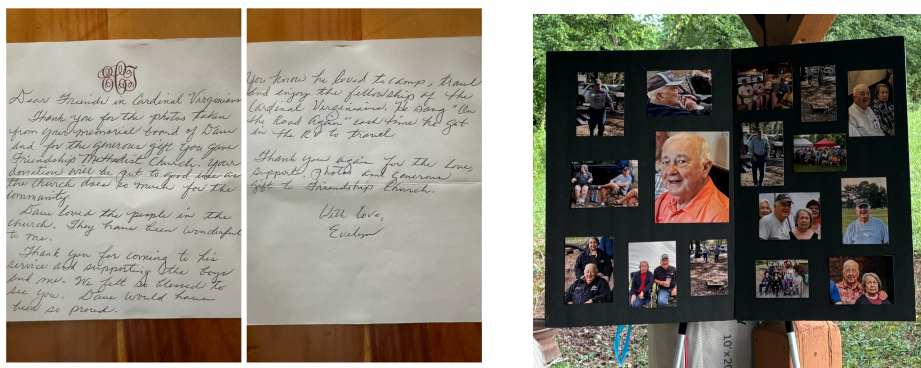 Dear Friends in Cardinal Virginians
Thank you for the photos taken
from your memorial board of Dave
and for the generous gift you gave
Friendship Methodist Church. Your
donation will be put to good use as
the church does so much for the
community.
Dave loved the people in the
church. They have been wonderful
to me.
Thank you for coming to his
service and supporting the boys
and me. We felt so blessed to
see you. Dave would have
been so proud.
You know he loved to camp, travel
and enjoy the fellowship of the
Cardinal Virginians. He sang "On
the Road Again" each time he got
in the RV to travel
Thank you again for the love,
support, photos and generous
gift to Friendship Church.
With love,
Evelyn